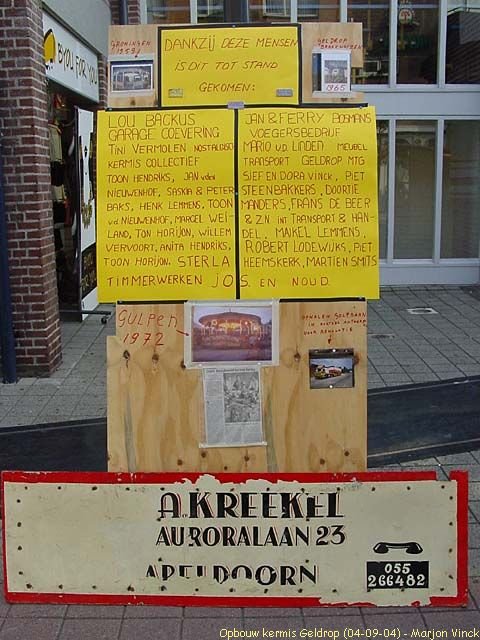 BYOU FOR YOU
GRONINGEN
1959?
DANKZIJ DEZE MENSEN
IS DIT TOT STAND
GEKOMEN:
GELDROP
1965
LOU BACKUS
GARAGE COEVERING
TINI VERMOLEN NOSTALGISCH
KERMIS COLLECTIEF
TOON HENDRIKS, JAN v/den
NIEUWENHOF, SASKIA & PETER
BAKS, HENK LEMMENS, TOON
v/d NIEUWENHOF, MARCEL WEI-
LAND, TON HORIJON, WILLEM
VERVOORT, ANITA HENDRIKS,
TOON HORIJON. STERLA
TIMMERWERKEN JOS EN NOUD.
JAN & FERRY BOSMANS
VOEGERSBEDRIJF
MARIO v.D. LINDEN MEUBEL
TRANSPORT GELDROP MTG
SIEF EN DORA VINCK, PIET
STEENBAKKERS, DOORTJE
MANDERS, FRANS DE BEER
& ZN INT TRANSPORT & HAN-
DEL, MAIKEL LEMMENS,
ROBERT LODEWIJKS, PIET
HEEMSKERK, MARTIEN SMITS
GULPEN
1972
OPHALEN GOLFBAAN
ANTWERP
VOOR RENOVATIE
A. KREEKEL
AURORALAAN 23
APELDOORN
055
266482
Opbouw kermis Geldrop (04-09-04) - Marjon Vinck